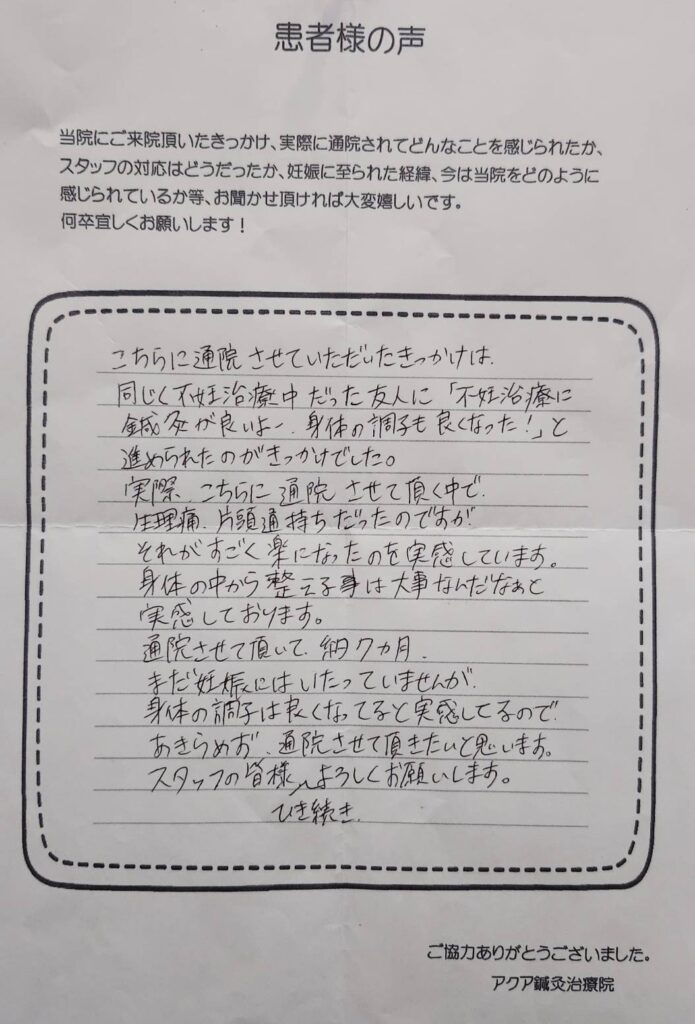 患者様の声
当院にご来院頂いたきっかけ、実際に通院されてどんなことを感じられたか、
スタッフの対応はどうだったか、妊娠に至られた経緯、今は当院をどのように
感じられているか等、お聞かせ頂ければ大変嬉しいです。
何卒宜しくお願いします！
こちらに通院させていただいたきっかけは、
同じく不妊治療中だった友人に「不妊治療に
鍼灸が良いよー、身体の調子も良くなった！」と
進められたのがきっかけでした。
実際、こちらに通院させて頂く中で、
生理痛、片頭通持ちだったのですが
それがすごく楽になったのを実感しています。
身体の中から整える事は大事なんだなぁと
実感しております。
通院させて頂いて、約7カ月、
まだ妊娠にはいたっていませんが、
身体の調子は良くなってると実感してるので、
あきらめず、通院させて頂きたいと思います。
スタッフの皆様、よろしくお願いします。
ひき続き、
ご協力ありがとうございました。
アクア鍼灸治療院